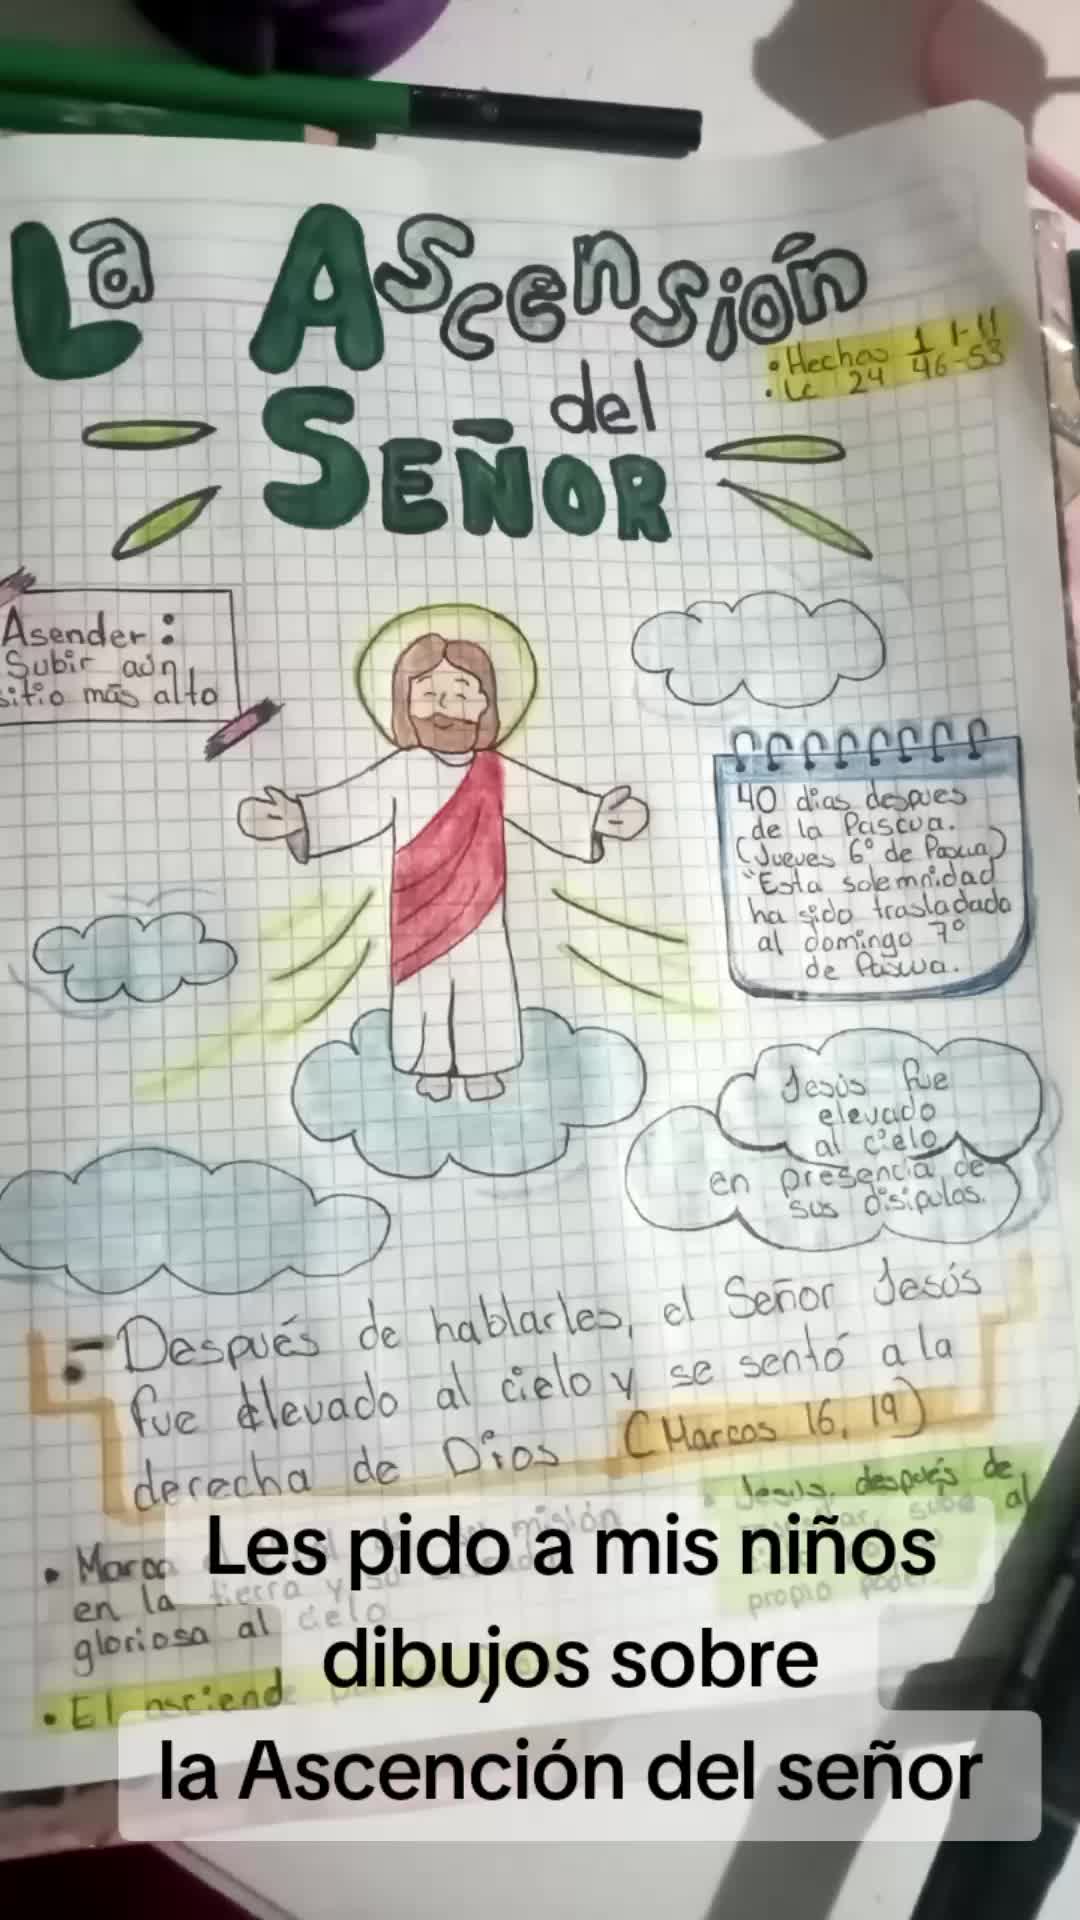 La Ascensión
del
SEÑOR
• Hechos 1 1-11
• Lc 24 46-53
Asender:
Subir aún
sitio más alto
40 dias despues
de la Pascua.
(Jueves 6° de Pascua)
"Esta solemnidad
ha sido trasladada
al domingo 7°
de Pascua.
Jesús fue
elevado
al cielo
en presencia de
sus disipulos.
Después de hablarles, el Señor Jesús
fue elevado al cielo y se sentó a la
derecha de Dios (Marcos 16, 19)
• Jesús, después de
al
propio poder.
• Marca misión
en la tierra y su
gloriosa al cielo
• El asciende
Les pido a mis niños
dibujos sobre
la Ascención del señor